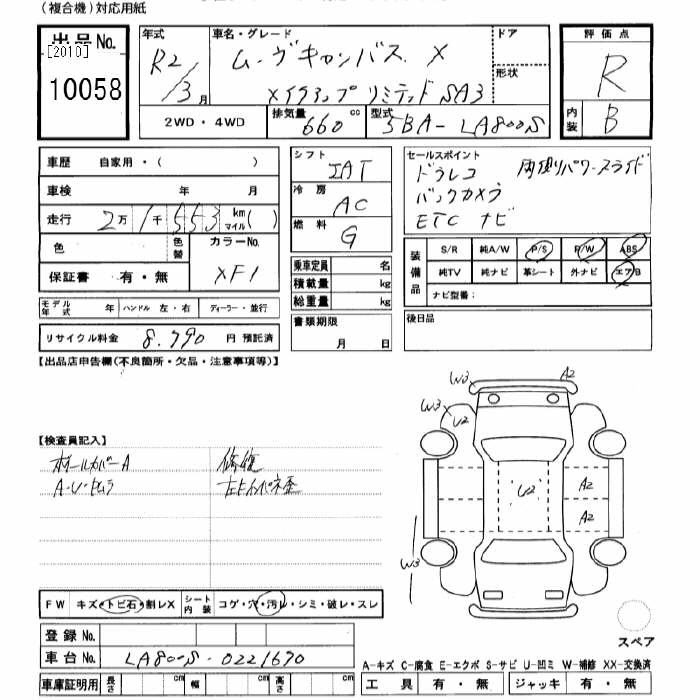 (複合機)対応用紙
出品No.
[2010]
10058
年式
R2/3月
車名・グレード
ムーヴキャンバス X
メイクアップ リミテッド SA3
ドア
形状
評価点
R
内装
B
2WD・4WD
排気量
660 cc
型式
5BA-LA800S
車歴 自家用・( )
車検 年 月
走行 2万1千553 km マイル( )
色
色替
カラーNo.
XF1
保証書 有・無
モデル年式 年 ハンドル 左・右 ディーラー・並行
リサイクル料金 8,790 円 預託済
シフト
IAT
冷房
AC
燃料
G
乗車定員 名
積載量 kg
総重量 kg
書類期限
月 日
セールスポイント
ドラレコ 両側パワースライド
バックカメラ
ETC ナビ
装備品
S/R 純A/W P/S P/W ABS
純TV 純ナビ 革シート 外ナビ エアB
ナビ型番:
後日品
【出品店申告欄(不良箇所・欠品・注意事項等)】
【検査員記入】
ホイールカバーA 修復
A・U・ヒ
W3 A2
W3 U2
U2 A2
A2
W3
FW キズ・トビ石・割レX
シート内装 コゲ・穴・汚レ・シミ・破レ・スレ
登録No.
車台No. LA800S-0221670
車庫証明用 長さ cm 幅 cm 高さ cm
スペア
A-キズ C-腐食 E-エクボ S-サビ U-凹ミ W-補修 XX-交換済
工具 有・無 ジャッキ 有・無